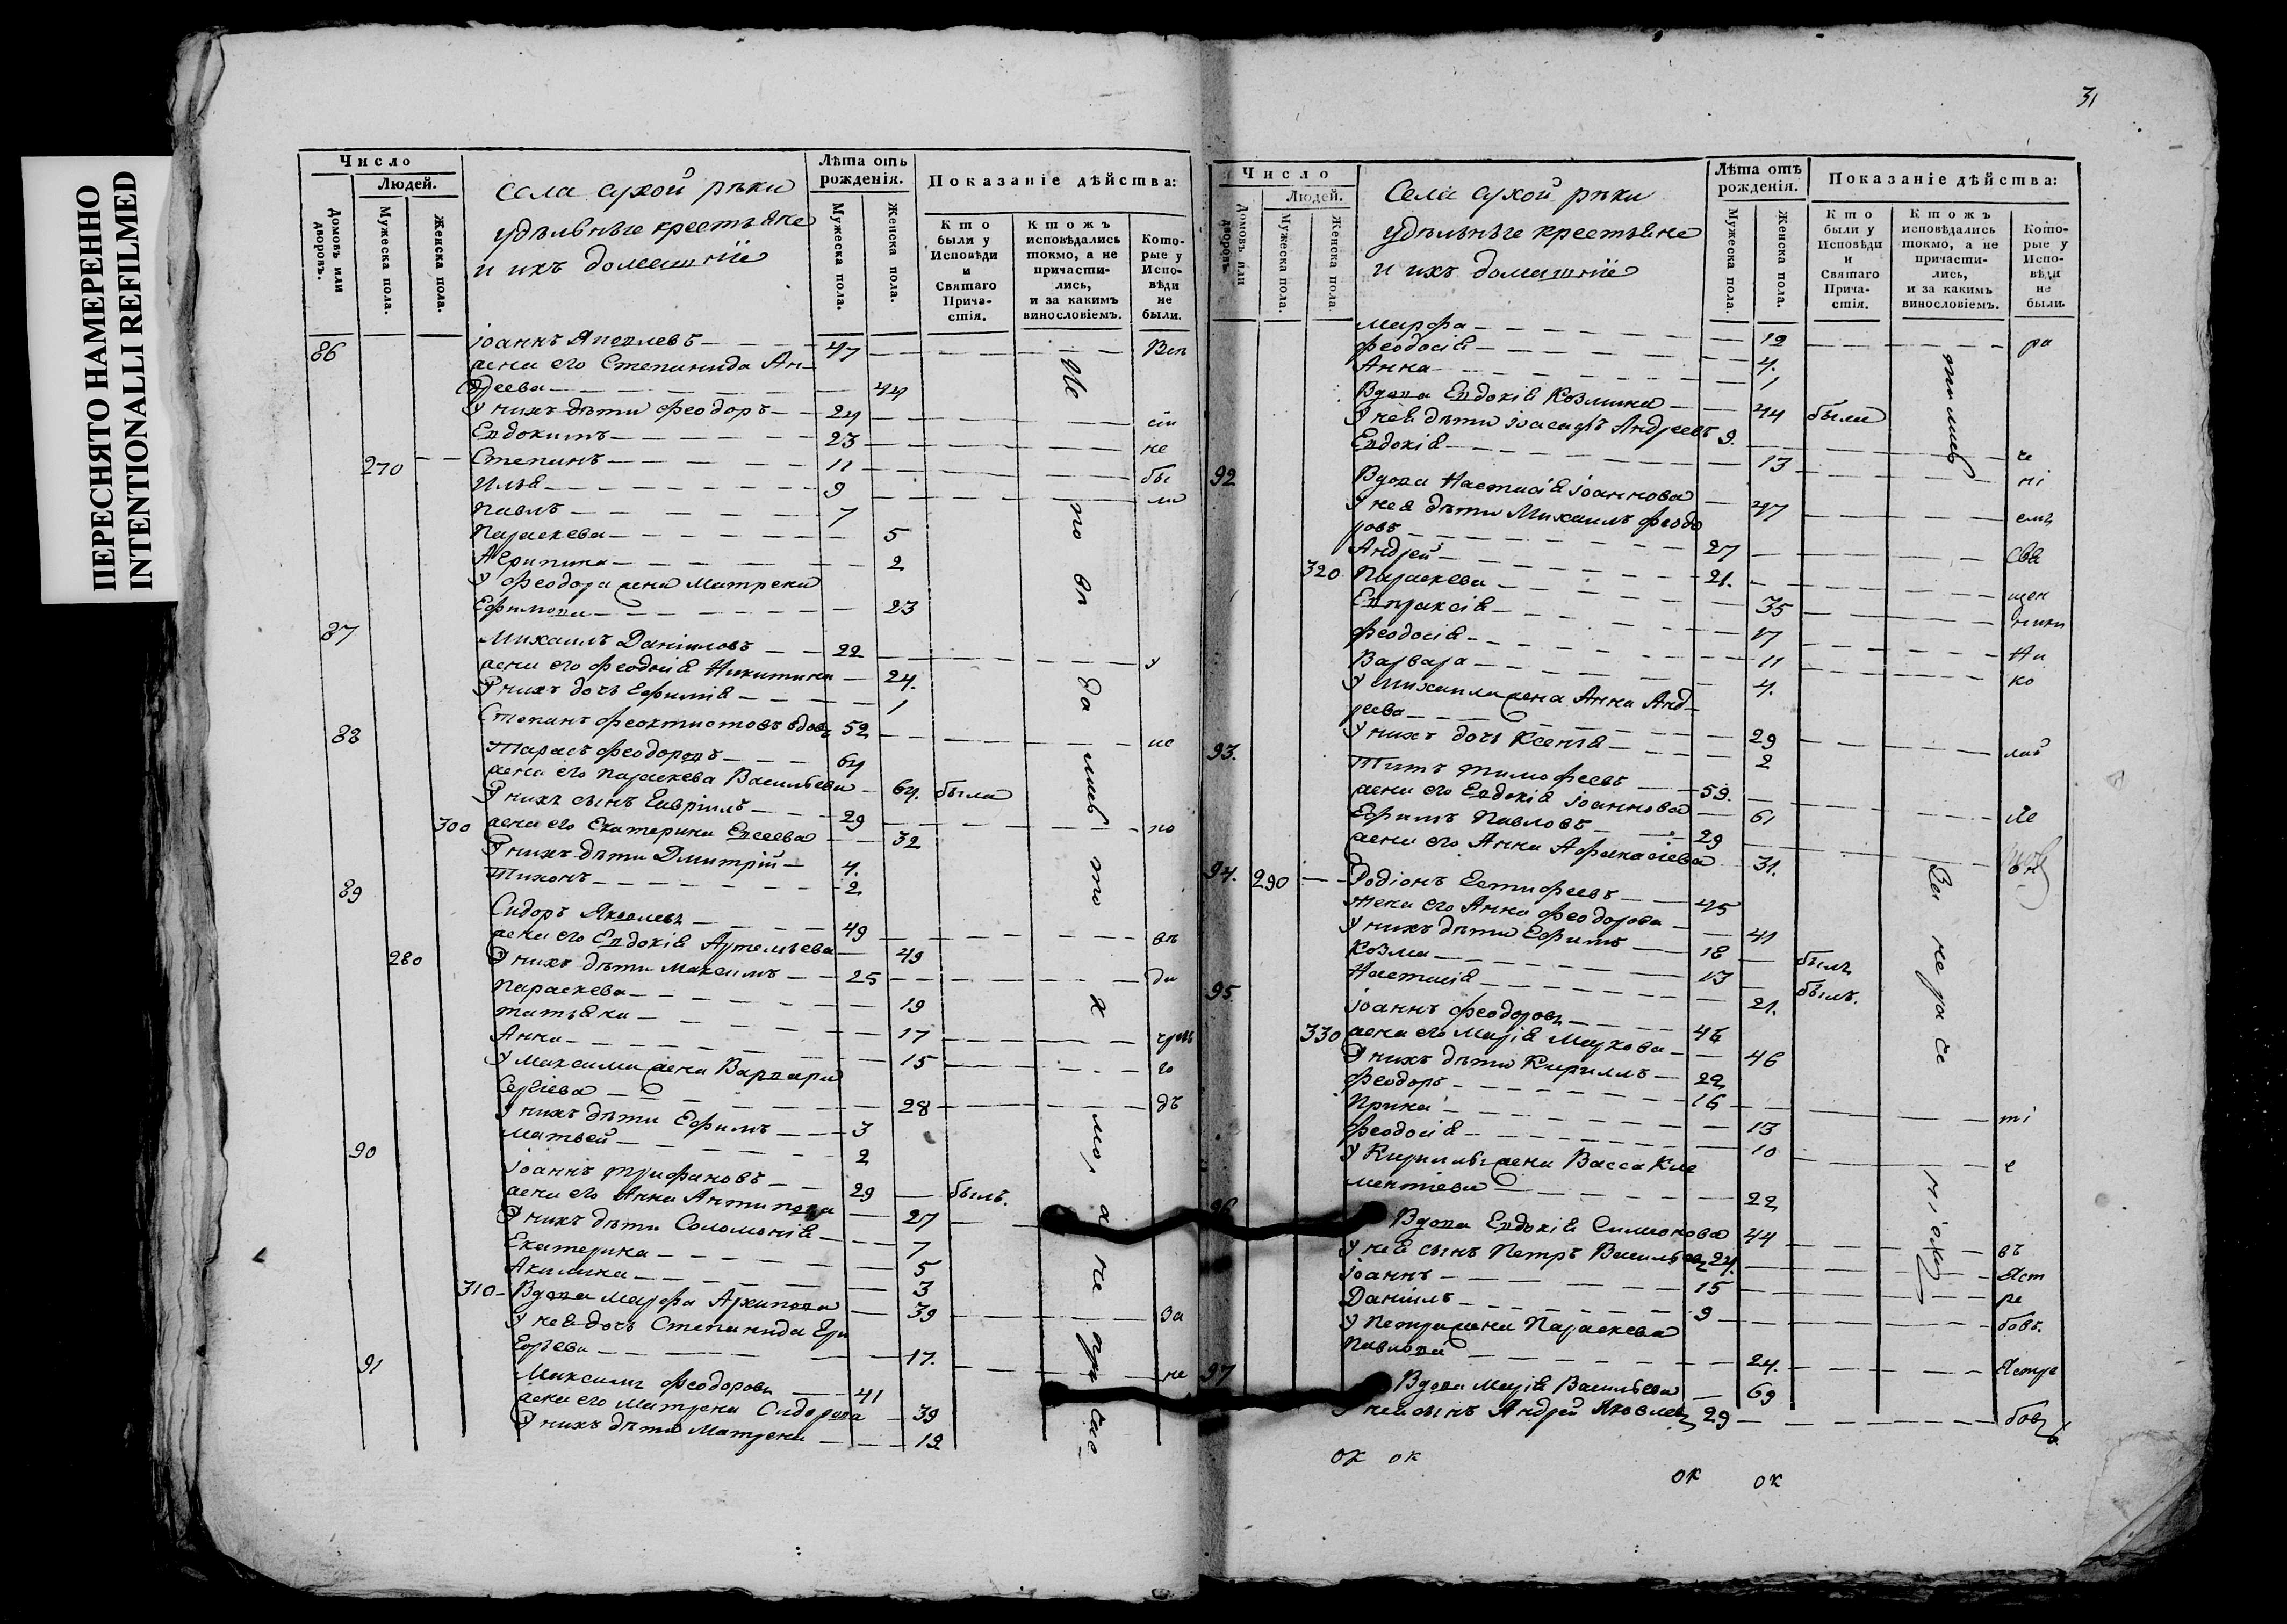 ПЕРЕСНЯТО НАМЕРЕННО
INTENTIONALLI REFILMED
Число
Людей.
Домовъ или дворовъ.
Мужеска пола.
Женска пола.
Села сухой рѣки
удѣльные крестьяне
и ихъ домашніе
Лѣта отъ рожденія.
Мужеска пола.
Женска пола.
Показаніе дѣйства:
Кто были у Исповѣди и Святаго Причастія.
Ктожъ исповѣдались токмо, а не причастились, и за какимъ винословіемъ.
Которые у Исповѣди не были.
86 Іоаннъ 47
жена его Степанида Ан-
дреева 44
У нихъ дѣти Феодоръ 24
Евдокимъ 23 не
270 Степанъ 11 бы
Илья 9 ли
Павелъ 7
Параскева 5
Агрипина 2
У Феодора жена Матрена
Ефимова 23
87 Михаилъ Даніиловъ 22 у
жена его Феодосія Никитина 24.
У нихъ дочь Ефимія 1
88 Степанъ Феоктистовъ вдовъ 52 ис
Тарасъ Феодоровъ 64
жена его Параскева Васильева 64. была
У нихъ сынъ Гавріилъ 29 по
300 жена его Екатерина Евсеева 32
У нихъ дѣти Дмитрій 4.
Тихонъ 2
89 Сидоръ Яковлевъ 49 вѣ
жена его Евдокія Артемьева 49
280 У нихъ дѣти Максимъ 25 ди
Параскева 19
Татьяна 17
Анна 15 го
У Максима жена Варвара
Сергіева 28 дъ
У нихъ дѣти Ефимъ 3
Матвей 2
90 Іоаннъ Трифановъ 29 былъ.
жена его Анна Антипова 27
У нихъ дѣти Соломонія 7
Екатерина 5
Акилина 3
310 Вдова Марфа Архипова 39 за
У нея дочь Степанида Гри
горьева 17. не
91 Максимъ Феодоровъ 41
жена его Матрена Сидорова 39
У нихъ дѣти Матрена 12
31
Число
Людей.
Домовъ или дворовъ.
Мужеска пола.
Женска пола.
Села сухой рѣки
удѣльные крестьяне
и ихъ домашніе
Лѣта отъ рожденія.
Мужеска пола.
Женска пола.
Показаніе дѣйства:
Кто были у Исповѣди и Святаго Причастія.
Ктожъ исповѣдались токмо, а не причастились, и за какимъ винословіемъ.
Которые у Исповѣди не были.
Марфа 12 ра
Феодосія 4.
Анна 1
Вдова Евдокія Козмина 44 были
У нея дѣти Іосифъ Андреевъ 9.
Евдокія 13
92 Вдова Настасія Іоаннова 47
У нея дѣти Михаилъ Феодо
ровъ 27
Андрей 21.
320 Параскева 35
Евпраксія 17
Феодосія 11
Варвара 4.
У Михаила жена Анна Анд-
реева 29
У нихъ дочь Ксенія 2
93. Титъ Тимофеевъ 59.
жена его Евдокія Іоаннова 61
Ефимъ Павловъ 29
жена его Анна Афанасіева 31.
94. 290 Родіонъ 45
жена его Анна Феодорова 41
У нихъ дѣти Ефимъ 18 былъ
Козма 13 былъ.
Настасія 21.
95 Іоаннъ Феодоровъ 46
330 жена его Марія Маркова 46
У нихъ дѣти Кириллъ 22
Феодоръ 16
Ирина 13
Феодосія 10
У Кирилы жена Васса Кле
ментіева 22
96 Вдова Евдокія Симионова 44 въ
У нея сынъ Петръ Васильевъ 24.
Іоаннъ 15
Даніилъ 9
У Петра жена Параскева
Павлова 24.
97 Вдова Марія Васильева 69
У нея сынъ Андрей Яковлевъ 29
ок ок
ок ок